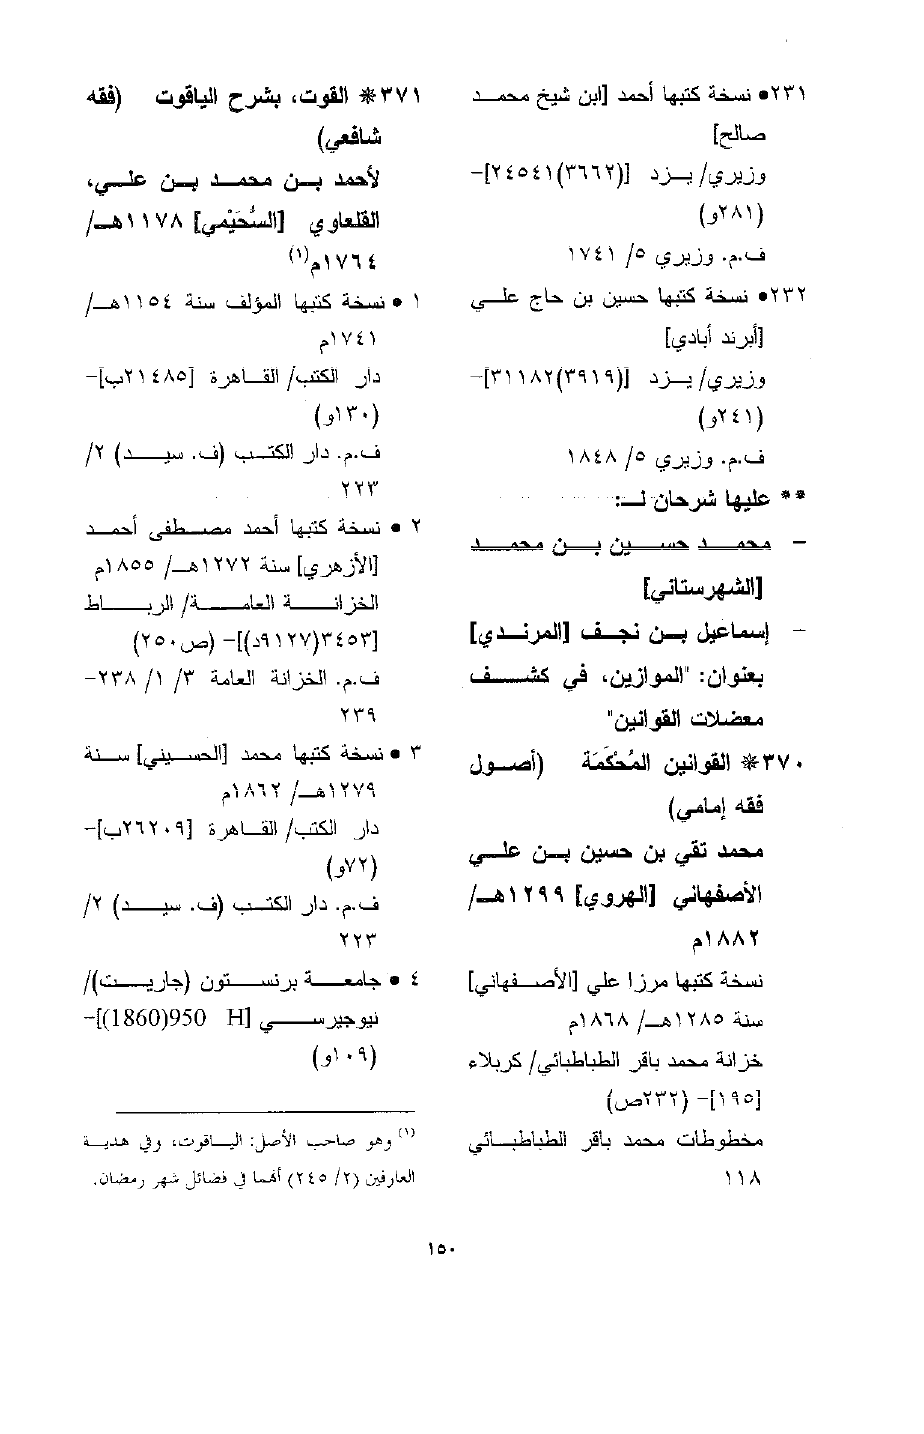 ٢٣١• نسخة كتبها أحمد [ابن شيخ محمد
صالح]
وزيري/ يزد [(٣٦٦٢)٢٤٥٤١]-
(٢٨١و)
ف.م. وزيري ٥/ ١٧٤١
٢٣٢• نسخة كتبها حسين بن حاج علي
[أبرند أبادي]
وزيري/ يزد [(٣٩١٩)٣١١٨٢]-
(٢٤١و)
ف.م. وزيري ٥/ ١٨٤٨
** عليها شرحان لـ:
- محمد حسين بن محمد
[الشهرستاني]
- إسماعيل بن نجف [المرندي]
بعنوان: "الموازين، في كشف
معضلات القوانين"
٣٧٠* القوانين المُحْكَمَة (أصول
فقه إمامي)
محمد تقي بن حسين بن علي
الأصفهاني [الهروي] ١٢٩٩هـ/
١٨٨٢م
نسخة كتبها مرزا علي [الأصفهاني]
سنة ١٢٨٥هـ/ ١٨٦٨م
خزانة محمد باقر الطباطبائي/ كربلاء
[١٩٥]- (٢٣٢ص)
مخطوطات محمد باقر الطباطبائي
١١٨
٣٧١* القوت، بشرح الياقوت (فقه
شافعي)
لأحمد بن محمد بن علي،
القلعاوي [السُّحَيْمي] ١١٧٨هـ/
١٧٦٤م(١)
١ • نسخة كتبها المؤلف سنة ١١٥٤هـ/
١٧٤١م
دار الكتب/ القاهرة [٢١٤٨٥ب]-
(١٣٠و)
ف.م. دار الكتب (ف. سيد) ٢/
٢٢٣
٢ • نسخة كتبها أحمد مصطفى أحمد
[الأزهري] سنة ١٢٧٢هـ/ ١٨٥٥م
الخزانة العامة/ الرباط
[٣٤٥٣(٩١٢٧د)]- (ص٢٥٠)
ف.م. الخزانة العامة ٣/ ١/ ٢٣٨-
٢٣٩
٣ • نسخة كتبها محمد [الحسيني] سنة
١٢٧٩هـ/ ١٨٦٢م
دار الكتب/ القاهرة [٢٦٢٠٩ب]-
(٧٢و)
ف.م. دار الكتب (ف. سيد) ٢/
٢٢٣
٤ • جامعة برنستون (جاريت)/
نيوجيرسي [950 H(1860)]-
(١٠٩و)
(١) وهو صاحب الأصل: الياقوت، وفي هدية
العارفين (٢/ ٢٤٥) أنهما في فضائل شهر رمضان.
١٥٠